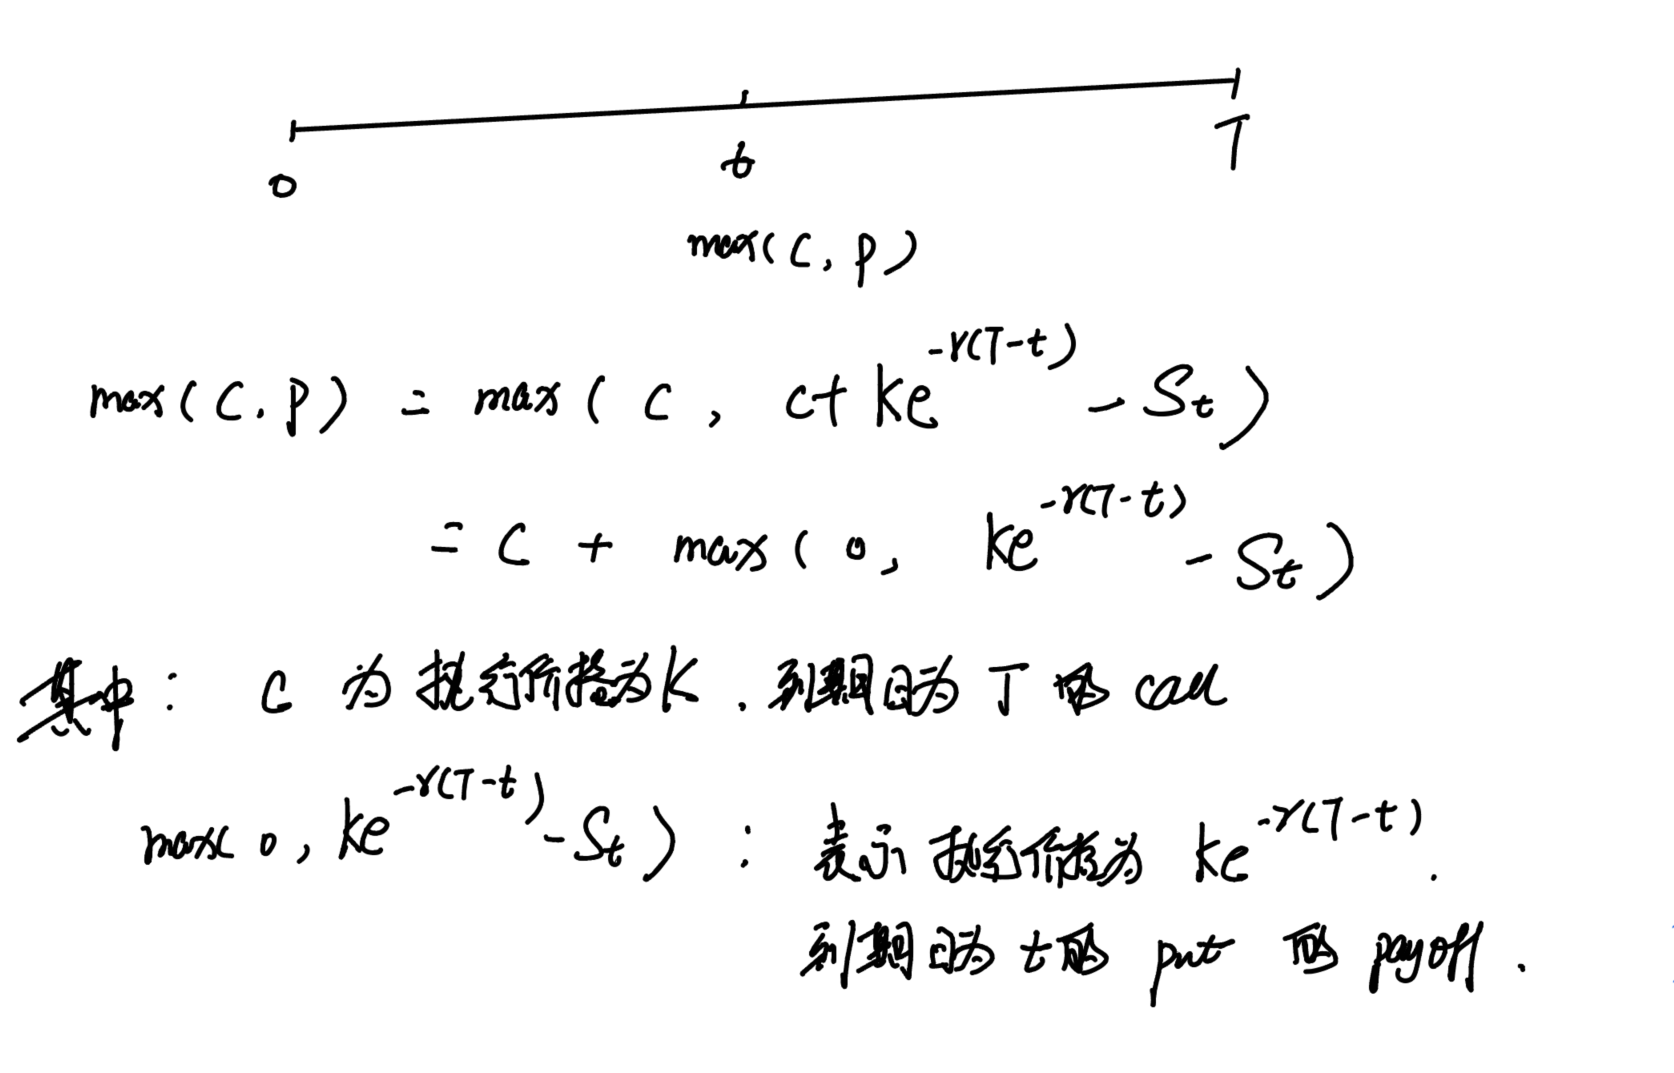 0 t T
max(C, P)
max(C, P) = max(C, C + Ke^{-r(T-t)} - S_t)
= C + max(0, Ke^{-r(T-t)} - S_t)
其中: C 为执行价格为K, 到期日为 T 的 call
max(0, Ke^{-r(T-t)} - S_t): 表示执行价格为 Ke^{-r(T-t)}.
到期日为 t 的 put 的 payoff.